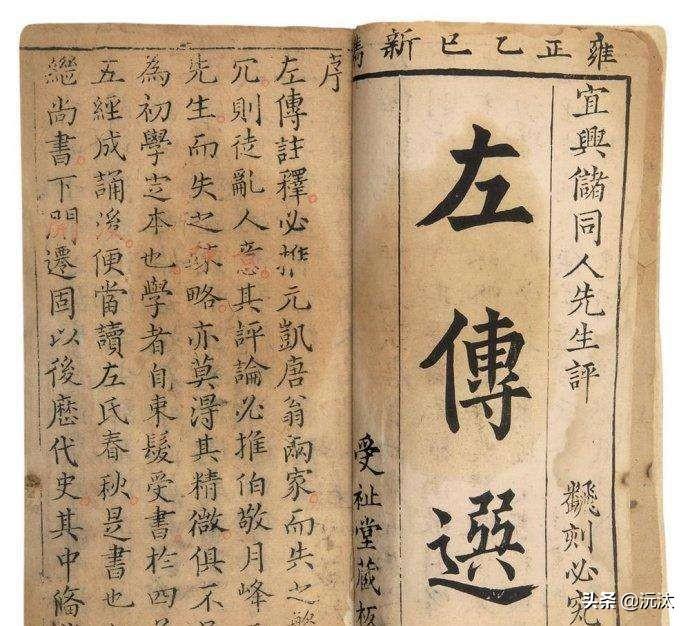 雍正乙巳新鐫
宜興儲同人先生評
飜刻必究
左傳選
受祉堂藏板
序
左傳註釋必推元凱唐翁兩家而失之繁
冗則徒亂人意其評論必推伯敬月峰
先生而失之疎略亦莫得其精微俱不
為初學定本也學者自束髮受書於四
五經成誦後便當讀左氏春秋是書也
總尚書下開遷固以後歷代史其中條
头条 @沅汰